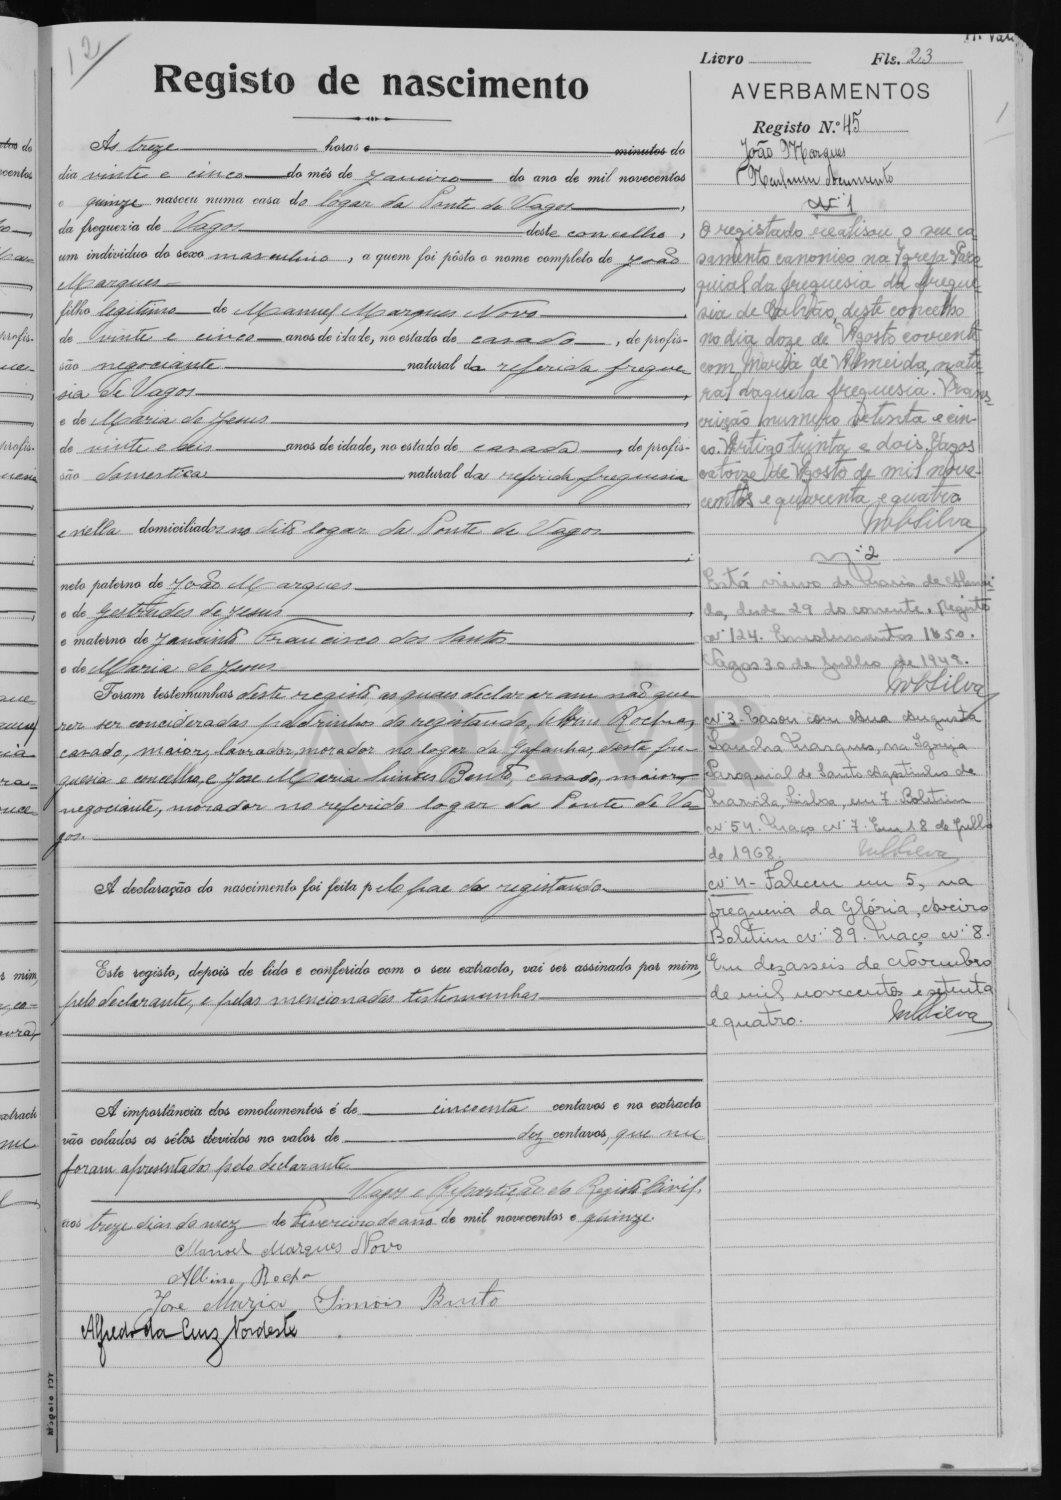 12
Registo de nascimento
Às treze horas e minutos do
dia vinte e cinco do mês de Janeiro do ano de mil novecentos
e quinze nasceu numa casa do logar da Ponte de Vagos,
da freguezia de Vagos deste concelho,
um individuo do sexo masculino, a quem foi pôsto o nome completo de João
Marques,
filho legitimo de Manuel Marques Novo,
de vinte e cinco anos de idade, no estado de casado, de profis-
são negociante natural da referida fregue-
sia de Vagos,
e de Maria de Jesus,
de vinte e seis anos de idade, no estado de casada, de profis-
são domestica natural da referida freguesia,
e nella domiciliados no dito logar da Ponte de Vagos;
neto paterno de João Marques
e de Gestrudes de Jesus,
e materno de Jancinto Francisco dos Santos
e de Maria de Jesus
Foram testemunhas deste registo as quaes declararam não que-
rer ser concideradas padrinhos do registando, Albino Rocha,
casado, maior, lavrador, morador no logar da Gafanha, desta fre-
guesia e concelho, e José Maria Simões Bento, casado, maior,
negociante, morador no referido logar da Ponte de Va-
gos.
A declaração do nascimento foi feita pelo pae do registando
Este registo, depois de lido e conferido com o seu extracto, vai ser assinado por mim,
pelo declarante, e pelas mencionadas testemunhas
A importância dos emolumentos é de cincoenta centavos e no extracto
vão colados os sêlos devidos no valor de dez centavos, que me
foram apresentados pelo declarante
Vagos e Repartição do Registo Civil,
aos treze dias do mez de Fevereiro do ano de mil novecentos e quinze.
Manoel Marques Novo
Albino Rocha
Jose Maria Simois Bento
Alfredo da Cruz Nordeste
Livro Fls. 23
AVERBAMENTOS
Registo N.º 45
João Marques
Nenhum documento
Nº 1
O registado realisou o seu ca-
samento canonico na Igreja Paro
quial da freguesia da fregue
sia de Calvão, deste concelho
no dia doze de Agosto corrente
com Maria de Almeida, natu
ral daquela freguesia. Trans-
crição numero setenta e cin-
co. Artigo trinta e dois. Vagos
catorze de Agosto de mil nove-
centos e quarenta e quatro
Nº 2
Está viuvo de Maria de Almei
da, desde 29 do corrente. Registo
nº 124. Emolumentos 1$50.
Vagos 30 de Julho de 1948.
Nº 3 - Casou com Ana Augusta
Sancha Marques, na Igreja
Paroquial de Santo Agostinho de
Marvila, Lisboa, em 7. Boletim
Nº 54. Maço Nº 7. Em 18 de Julho
de 1968.
Nº 4 - Faleceu em 5, na
freguesia da Glória, Aveiro
Boletim Nº 89. Maço Nº 8.
Em dezasseis de Novembro
de mil novecentos e setenta
e quatro.
ADAVR